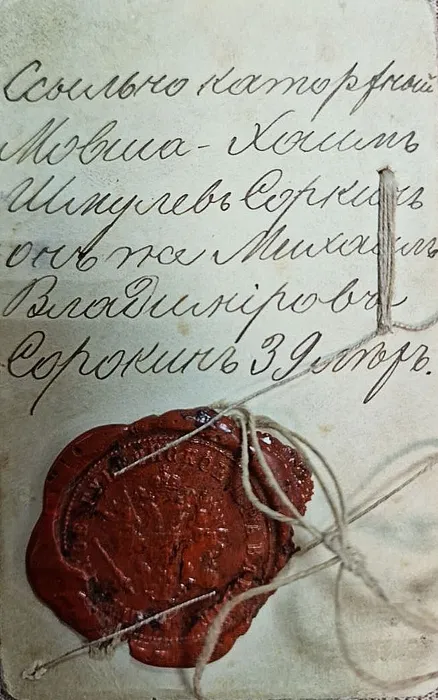 Ссыльно каторжный
Мовша-Хаимъ
Шмулевъ Соркинъ
онъ же Михаилъ
Владиміровъ
Сорокинъ 39 лѣтъ.